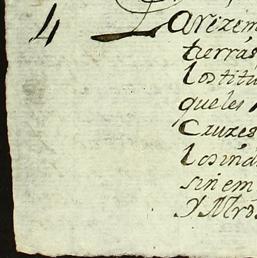 4 La rezem
tierras
Los titu
que les
Cruzes
Los ind
sin em
Y Mrd